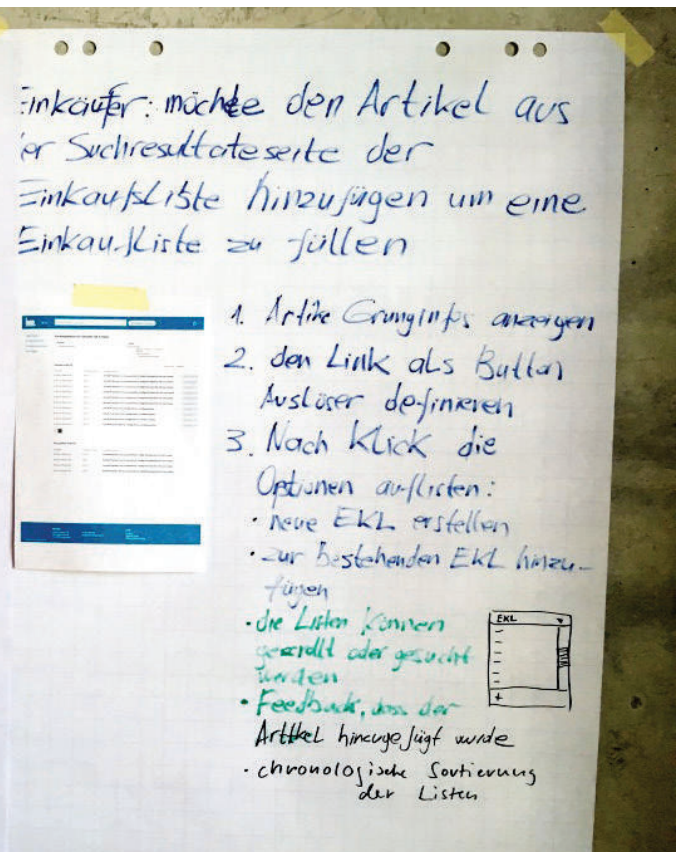 Einkäufer: möchte den Artikel aus
er Suchresultateseite der
Einkaufsliste hinzufügen um eine
Einkaufliste zu füllen
1. Artike Grunginfos anzeigen
2. den Link als Button
Auslöser definieren
3. Nach Klick die
Optionen auflisten:
• neue EKL erstellen
• zur bestehenden EKL hinzu-
fügen
• die Listen können
gescrollt oder gesucht
werden
EKL
+
• Feedback, dass der
Artikel hinzugefügt wurde
• chronologische Sortierung
der Listen